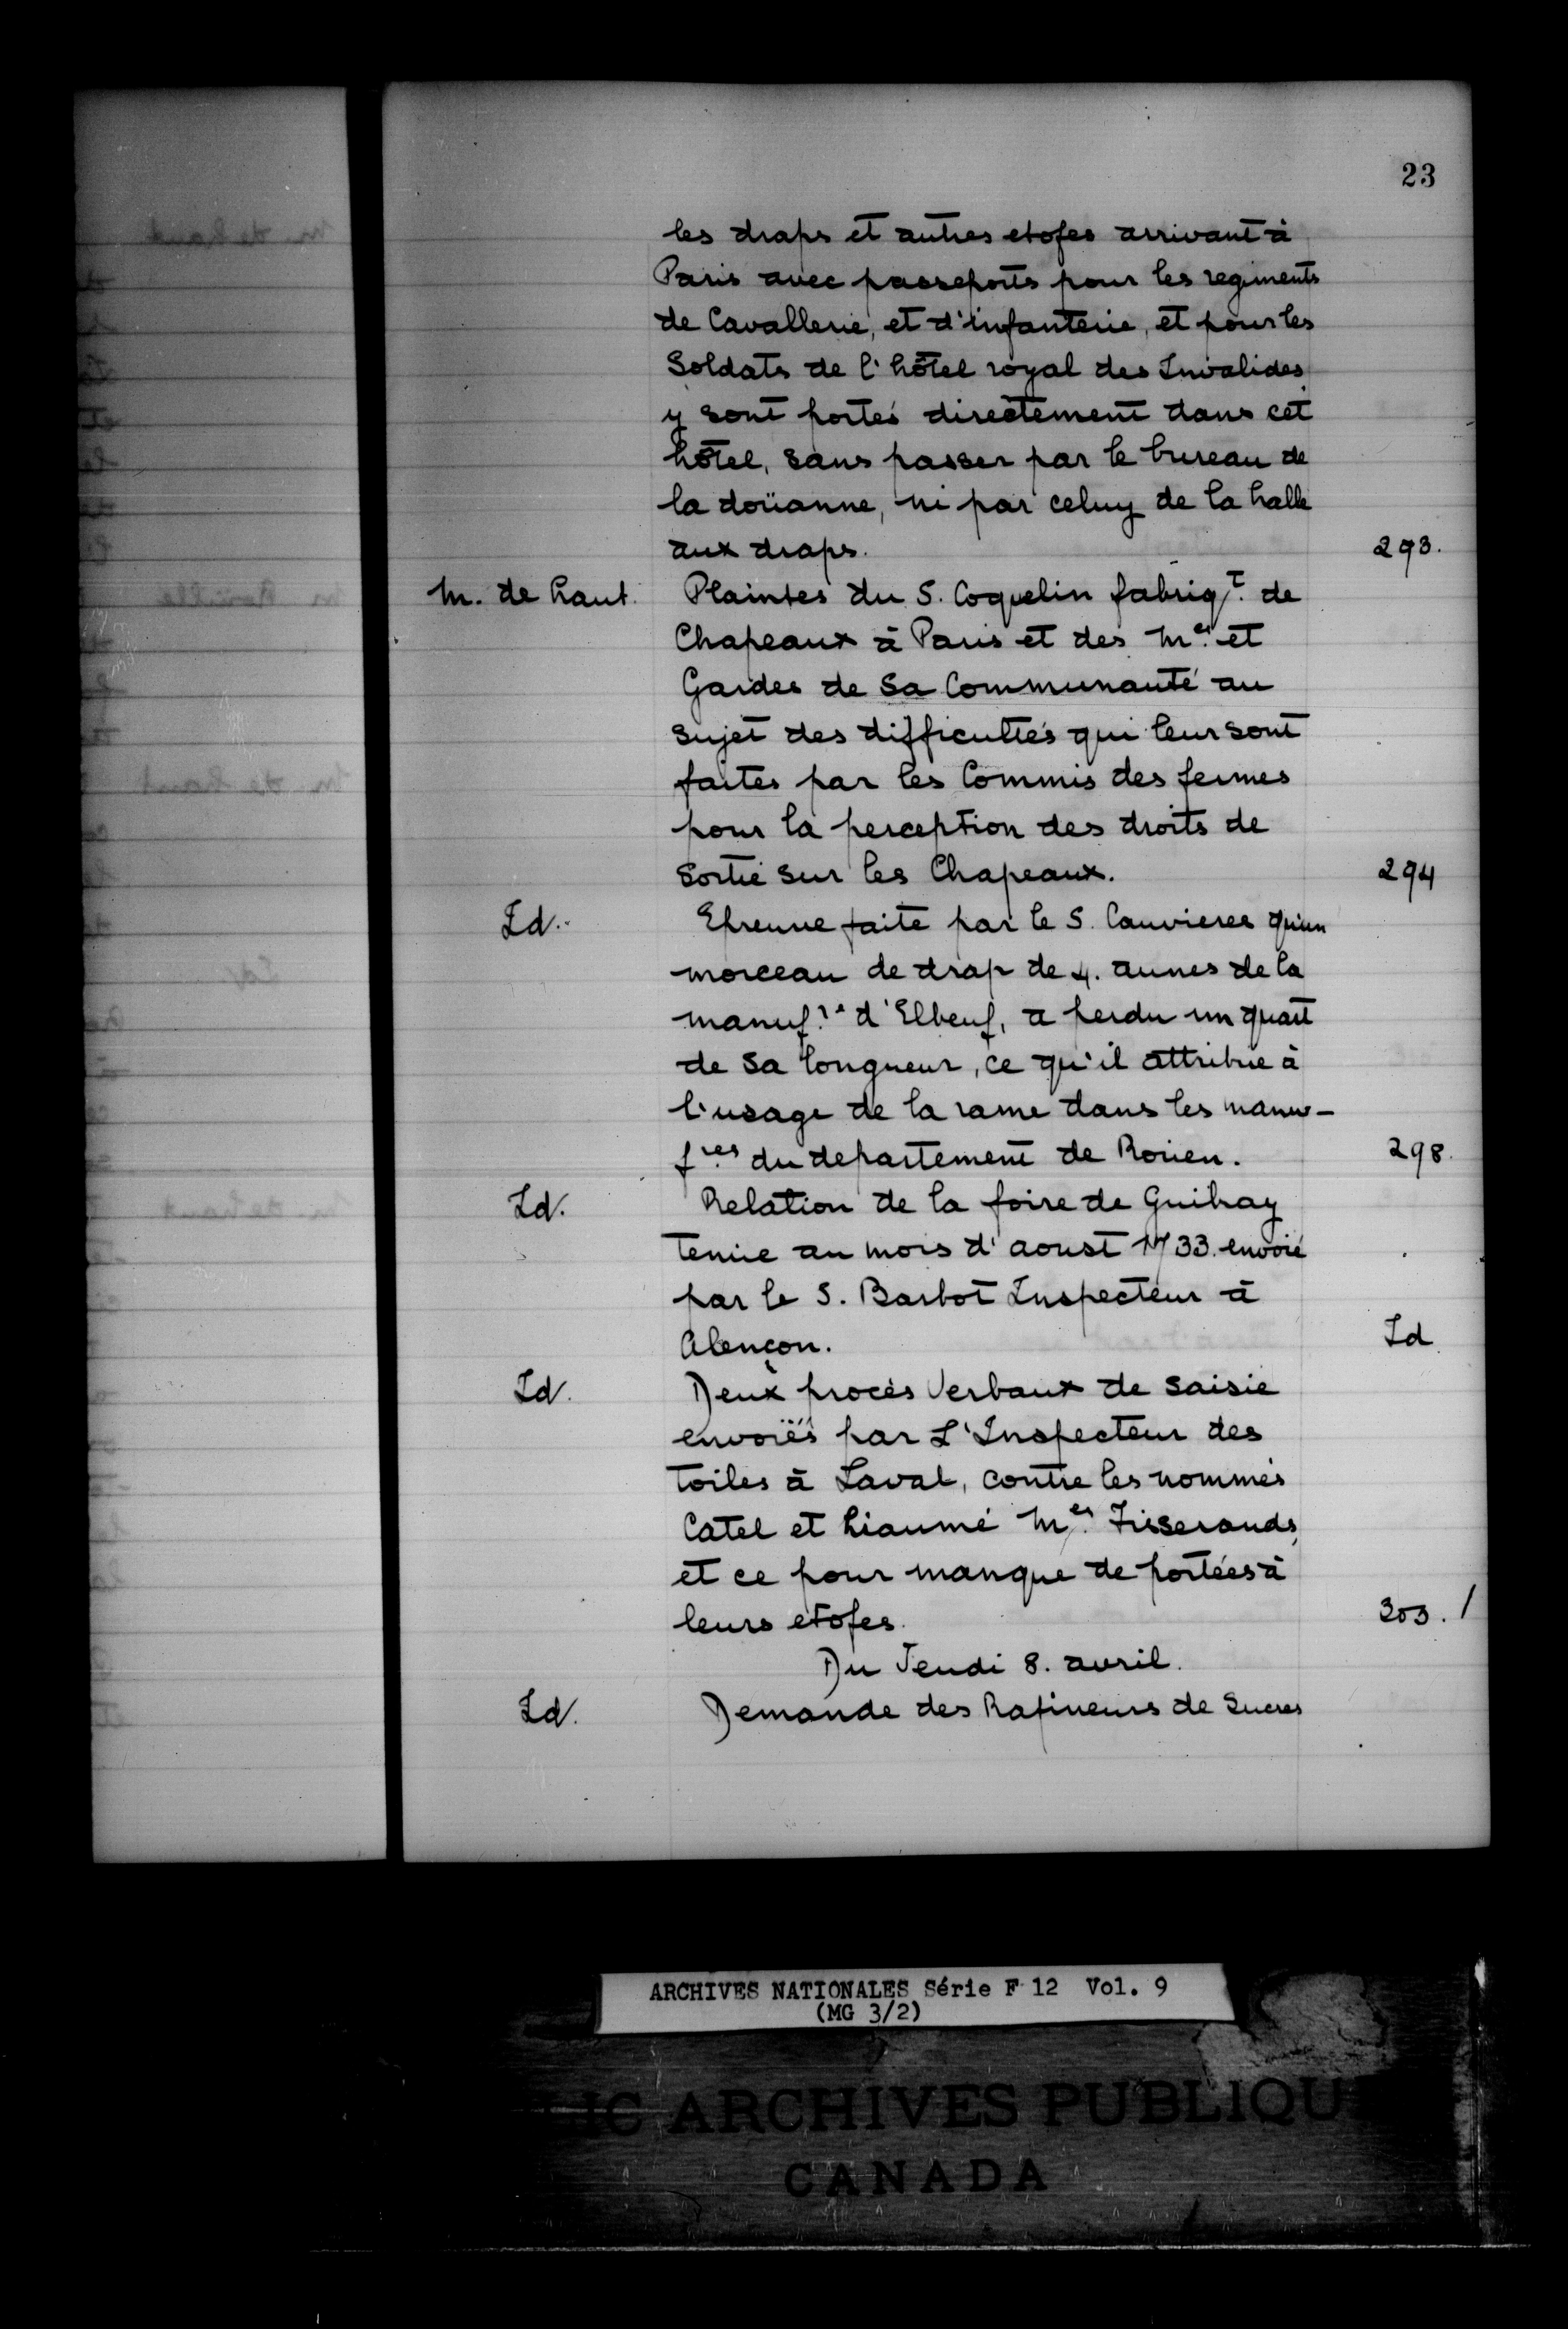 23
les draps et autres etofes arrivant à
Paris avec passeports pour les regiments
de Cavallerie, et d'infanterie, et pour les
Soldats de l'hôtel royal des Invalides,
y sont portés directement dans cet
hôtel, sans passer par le bureau de
la doüanne, ni par celuy de la halle
aux draps. 293.
M. de haut. Plaintes du S. Coquelin fabriqt. de
Chapeaux à Paris et des Mes. et
Gardes de Sa Communauté au
sujet des difficultés qui leur sont
faites par les Commis des fermes
pour la perception des droits de
Sortie sur les Chapeaux. 294
Id. Epreuve faite par le S. Cauvieres qu'un
morceau de drap de 4. aunes de la
manuf.re d'Elbeuf, a perdu un quart
de sa longueur, ce qu'il attribue à
l'usage de la rame dans les manu-
f.res du departement de Roüen. 298.
Id. Relation de la foire de Guibray
tenüe au mois d'aoust 1733. envoié
par le S. Barbot Inspecteur à
Alençon. Id
Id. Deux procès Verbaux de saisie
envoïés par L'Inspecteur des
toiles à Laval, contre les nommés
Catel et hiaumé Mes. Tisserands,
et ce pour manque de portées à
leurs etofes. 303. /
Du Jeudi 8. avril.
Id. Demande des Rafineurs de Sucres
ARCHIVES NATIONALES Série F 12 Vol. 9
(MG 3/2)
LIC ARCHIVES PUBLIQU
CANADA